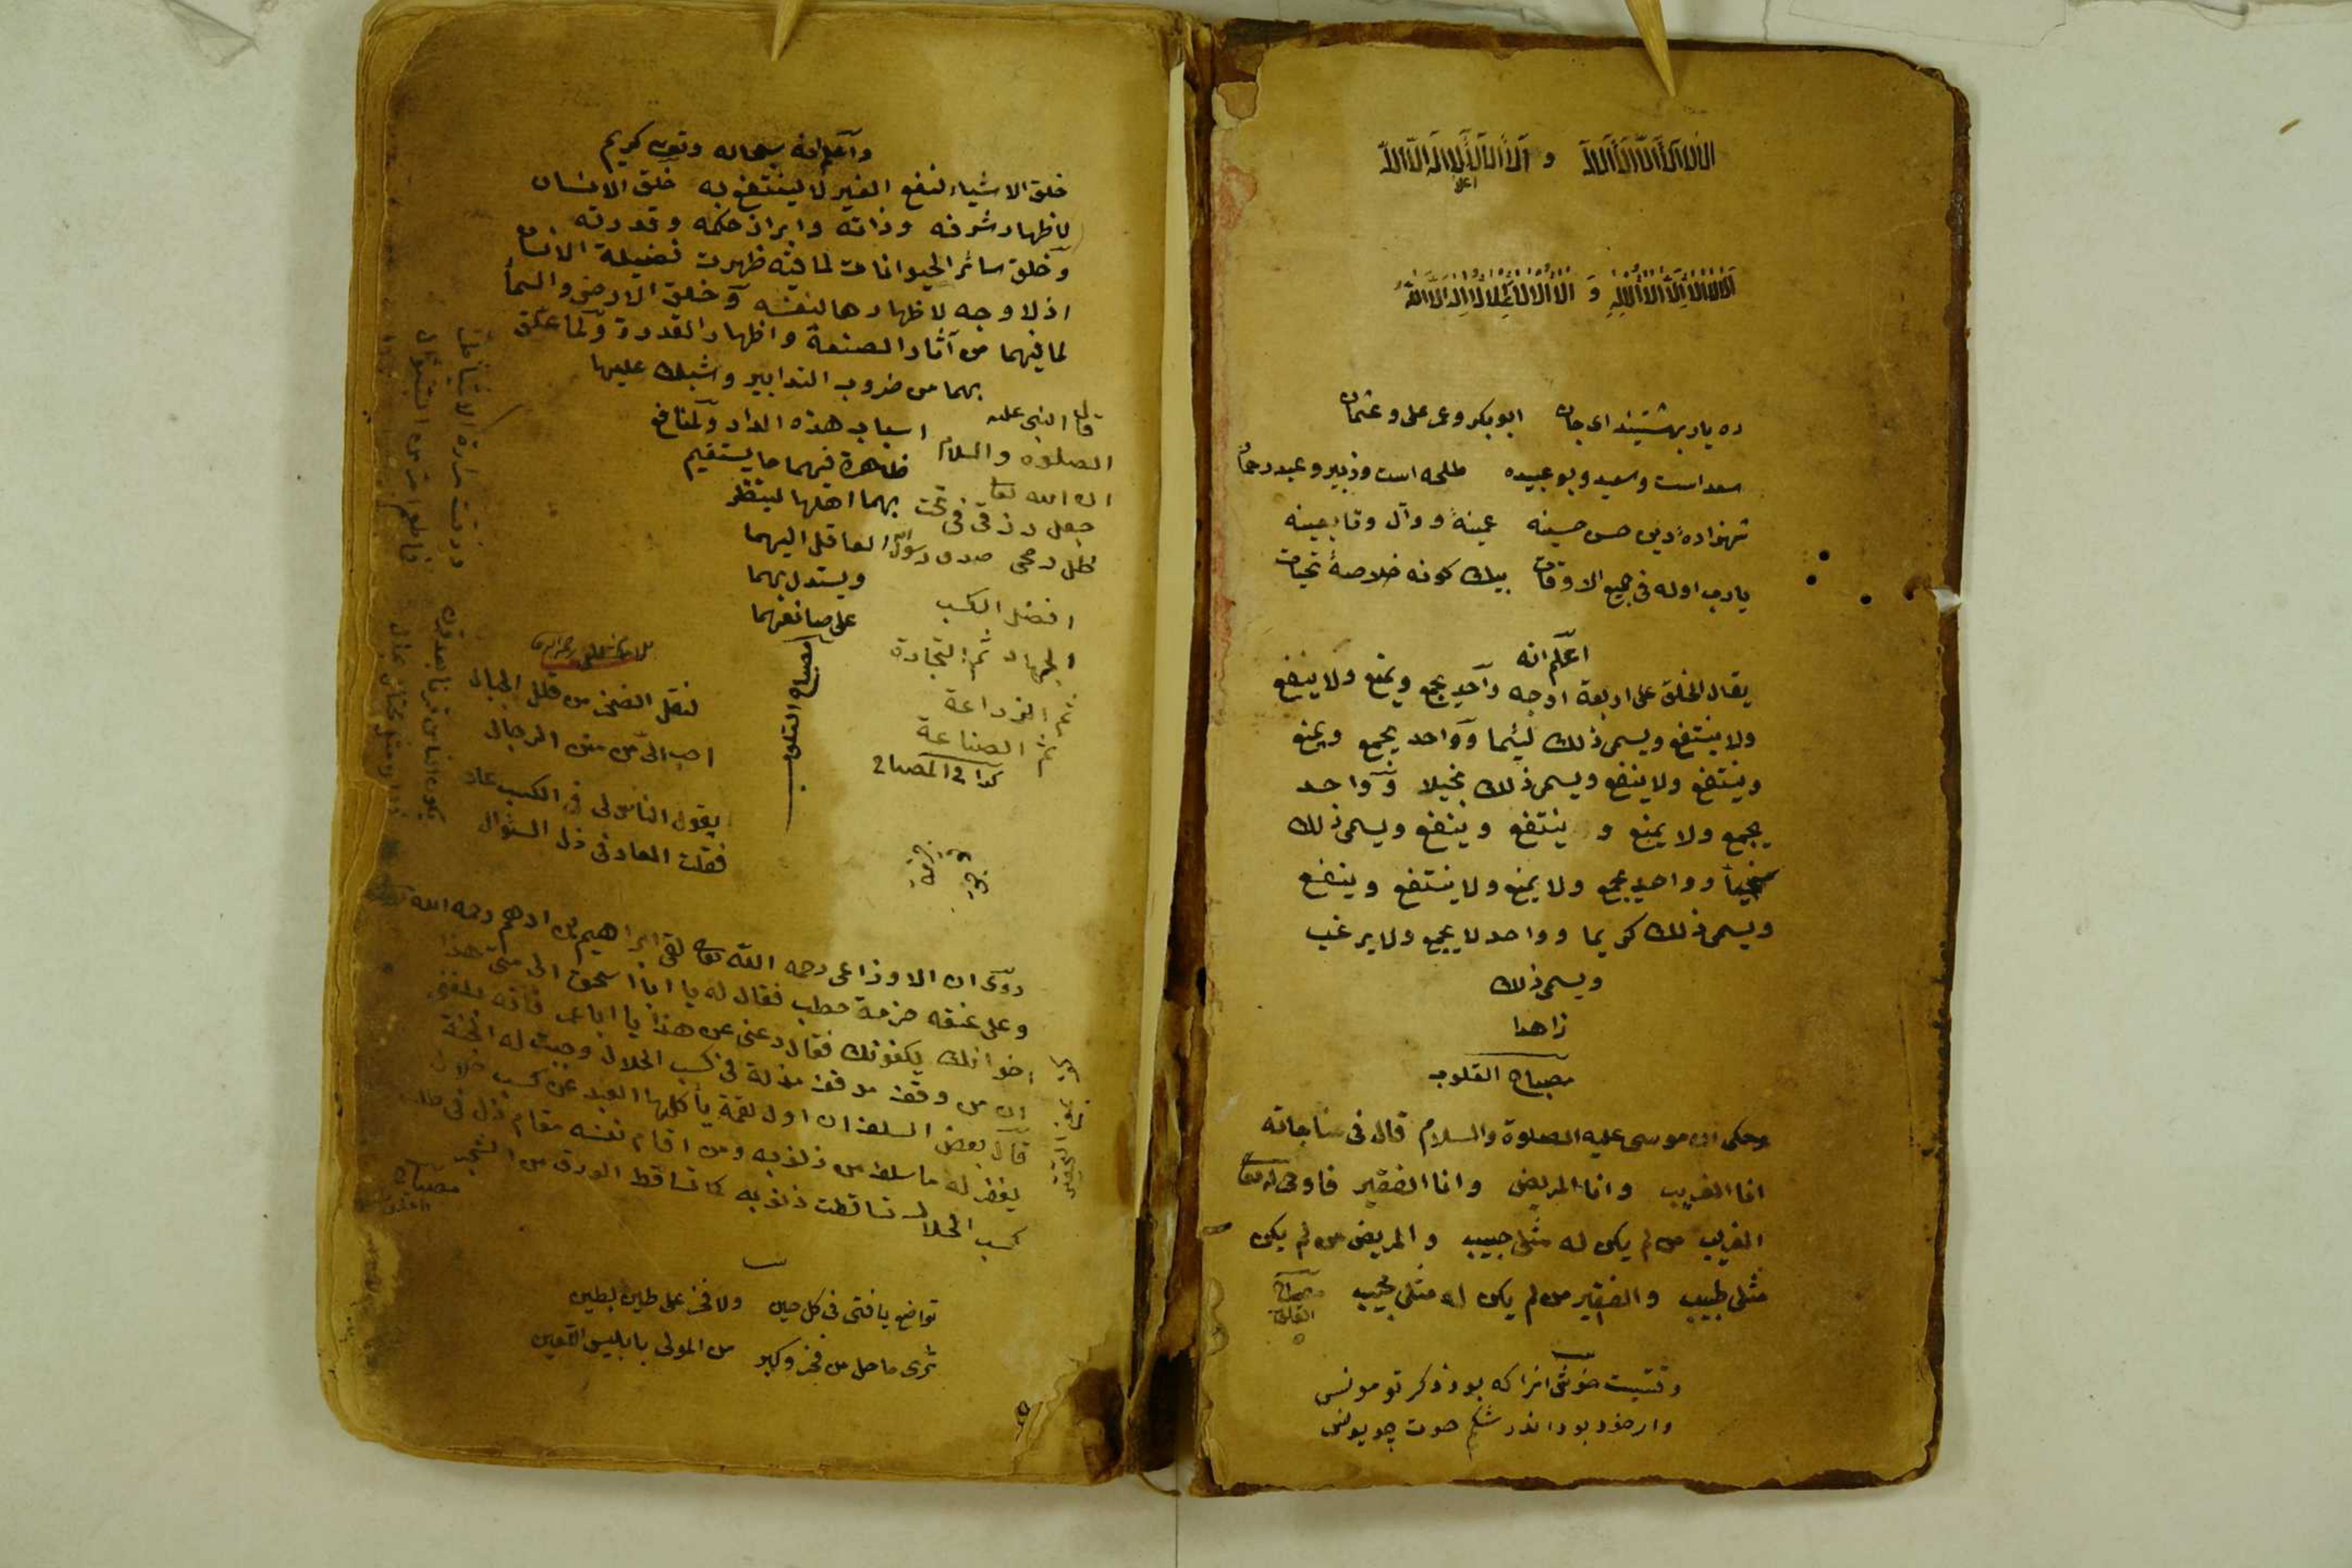 ده یار بهشتیند ای جان ابوبکر و عمر علی و عثمان
سعد است و سعید و بو عبیده طلحه است و زبیر و عبد رحمان
شهزادهٔ دین حسن حسینه عمینه و وآل و تابعینه
یارب اوله فی جمیع الاوقات بیك کونه خلاصهٔ تحیات
اعلم انه
یقال الخلق علی اربعة اوجه واحد یجمع ویمنع ولا ینفع
ولا ینتفع ویسمی ذلك لئیما وواحد یجمع ویمنع
وینتفع ولا ینفع ویسمی ذلك بخیلا وواحد
یجمع ولا یمنع و ینتفع وینفع ویسمی ذلك
سخیا وواحد یجمع ولا یمنع ولا ینتفع وینفع
ویسمی ذلك کریما وواحد لا یجمع ولا یرغب
ویسمی ذلك
زاهدا
مصباح القلوب
وحکی ان موسی علیه الصلوة والسلام قال فی مناجاته
انا الغریب وانا المریض وانا الفقیر فاوحی له تعا
الغریب من لم یکن له مثلی حبیب و المریض من لم یکن
مثلی طبیب والفقیر من لم یکن له مثلی مجیب مصباح القلوب
وقتیست خوش انرا که بود ذکر تو مونس
وار خود بود اندر شکم حوت چو یونس
واعلم انه سبحانه وتعالی کریم
خلق الاشیاء لنفع الغیر لا لینتفع به خلق الانسان
لاظهار شرفه وذاته وابراز حکمه وقدرته
وخلق سائر الحیوانات لما فیه ظهرت فضیلة الانسان
اذ لا وجه لاظهارها لنفسه وخلق الارض والسما
لما فیهما من آثار الصنعة واظهار القدرة ولما علق
بهما من ضروب التدابیر وشبك علیها
اسباب هذه الدار والمنافع
ظاهرة فیهما ما یستقیم
بهما اهلها لینظر
العاقل الیهما
ویستدل بهما
علی صانعهما
مصباح القلوب
قال النبی علیه
الصلوة والسلام
ان الله تعا
جعل رزقی فی تحت
ظل رمحی صدق رسول الله
افضل الکسب
الجهاد ثم التجارة
ثم الزراعة
ثم الصناعة
کذا فی المصباح
لنقل الصخر من قلل الجبال
احب الی من منن الرجال
یقول الناس لی فی الکسب عار
فقلت العار فی ذل السؤال
وذقت مرارة الاشیاء
فما طعم امر من السؤال
روی ان الاوزاعی رحمه الله تعا لقی ابراهیم بن ادهم رحمه الله
وعلی عنقه حزمة حطب فقال له یا ابا اسحق الی متی هذا
اخوانك یکفونك فقال دعنی عن هذا یا ابا عمر فانه بلغنی
ان من وقف موقف مذلة فی کسب الحلال وجبت له الجنة
قال بعض السلف ان اول لقمة یأکلها العبد من کسب حلال
یغفر له ما سلف من ذنوبه ومن اقام نفسه مقام ذل فی طلب
کسب الحلال تساقطت ذنوبه کما تساقط الورق من الشجر مصباح القلوب
تواضع یا فتی فی کل حین ولا فخر علی طین بطین
تری ما حل من فخر وکبر من المولی بابلیس اللعین